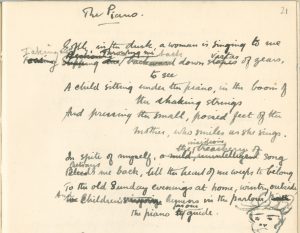 The Piano.
21
Softly, in the dusk, a woman is singing to me
Taking me back down the vistas of years,
to see
A child sitting under the piano, in the boom of
the shaking strings
And pressing the small, poised feet of the
mother, who smiles as she sings.
insidious
the treachery of
In spite of myself, a mild, unintelligent song
Betrays
me back, till the heart of me weeps to belong
To the old Sunday evenings at home, winter outside
And
Children's hymns in the parlour,
the piano guide.